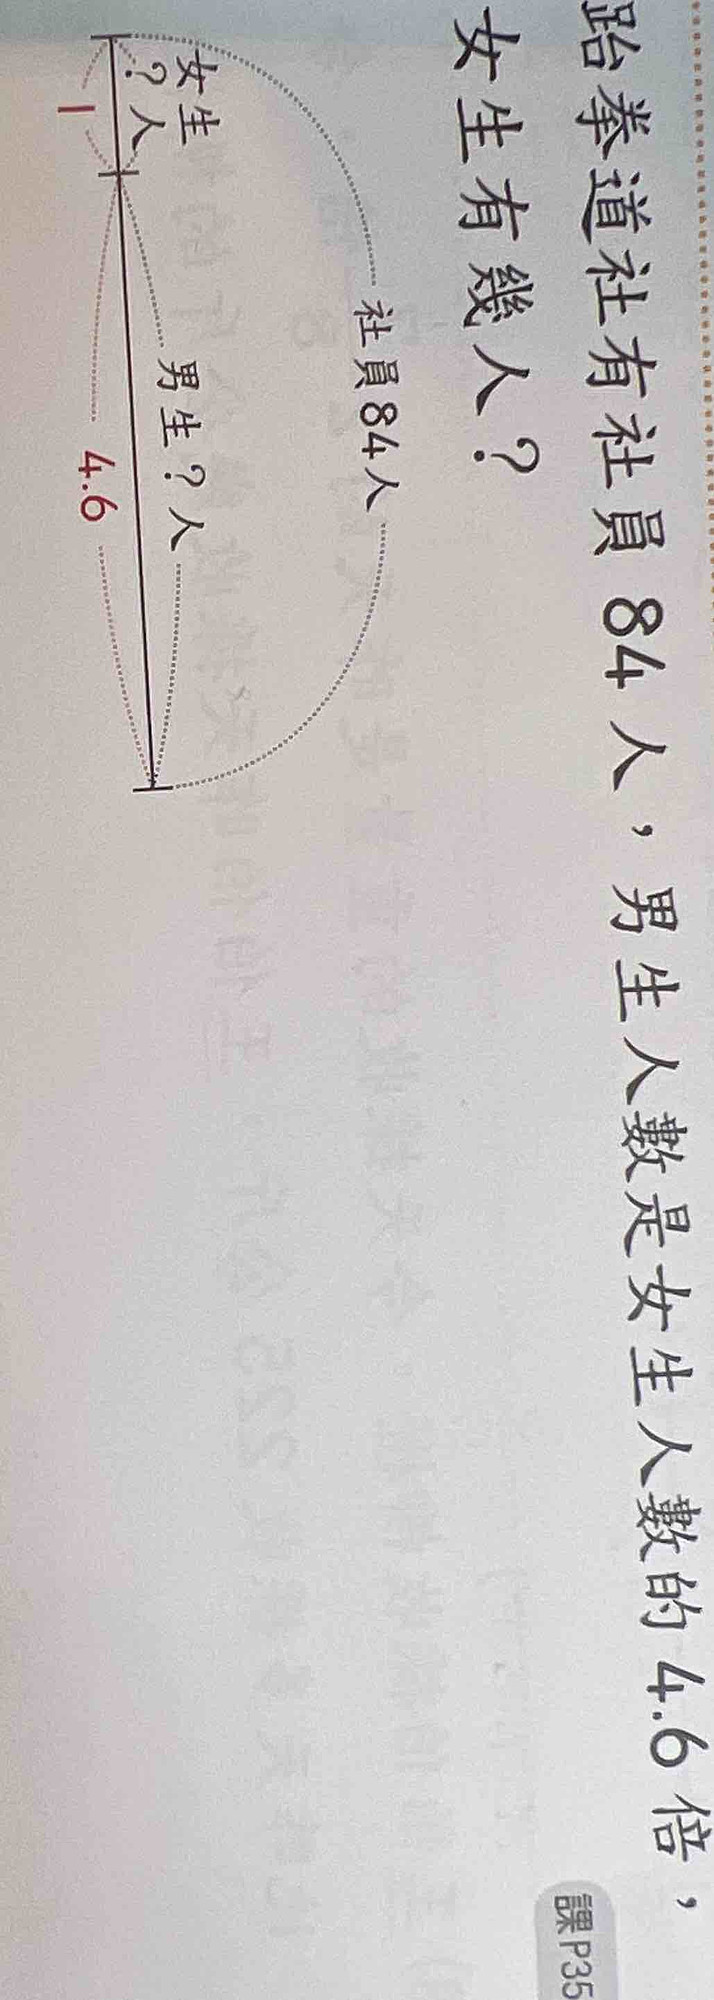 跆拳道社有社員 84 人，男生人數是女生人數的 4.6 倍，
女生有幾人？
課P35
社員84人
女生
？人
男生？人
1
4.6